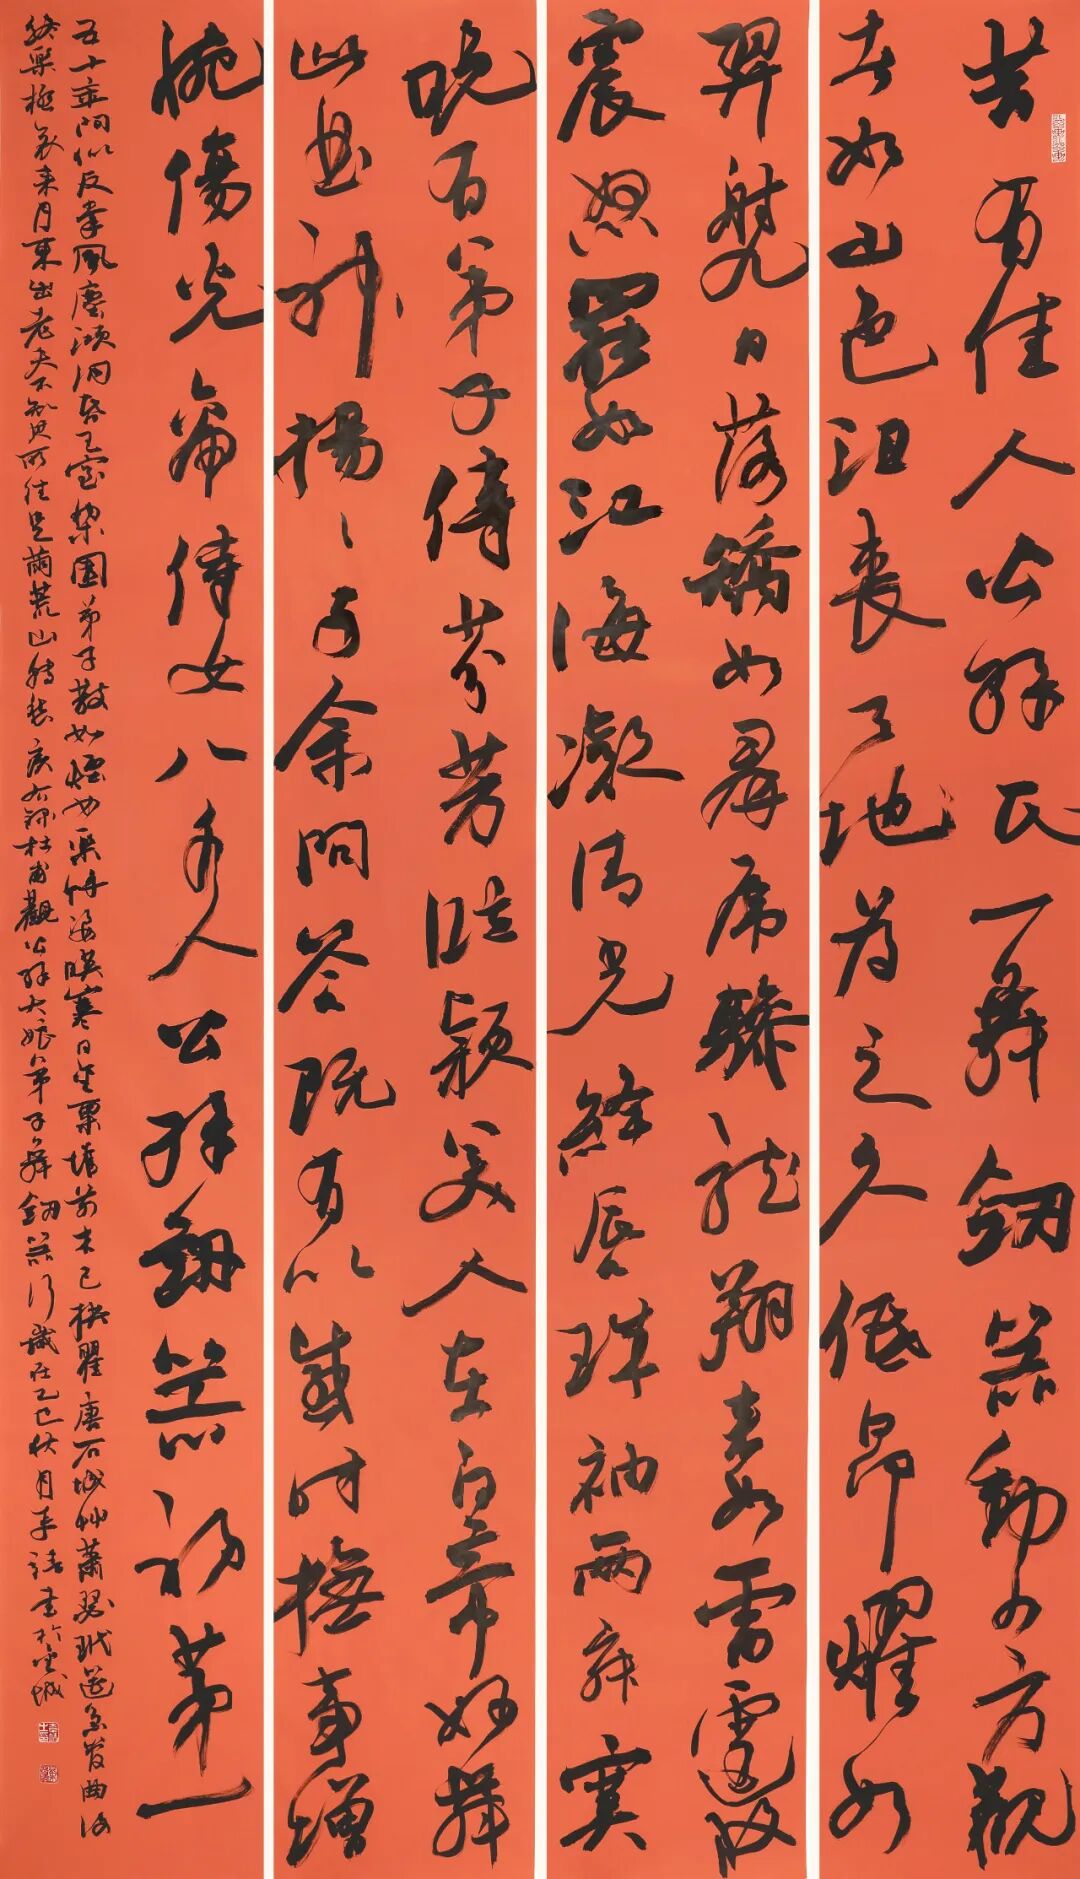 昔有佳人公孫氏一舞劍器動四方觀
者如山色沮喪天地為之久低昂㸌如
羿射九日落矯如群帝驂龍翔來如雷霆收
震怒罷如江海凝清光絳唇珠袖兩寂寞
晚有弟子傳芬芳臨潁美人在白帝妙舞
此曲神揚揚與余問答既有以感時撫事增
惋傷先帝侍女八千人公孫劍器初第一
五十年間似反掌風塵澒洞昏王室梨園弟子散如煙女樂餘姿映寒日金粟堆前木已拱瞿唐石城草蕭瑟玳筵急管曲復
終樂極哀來月東出老夫不知其所往足繭荒山轉愁疾右錄杜甫觀公孫大娘弟子舞劍器行歲在乙巳秋月書於金城